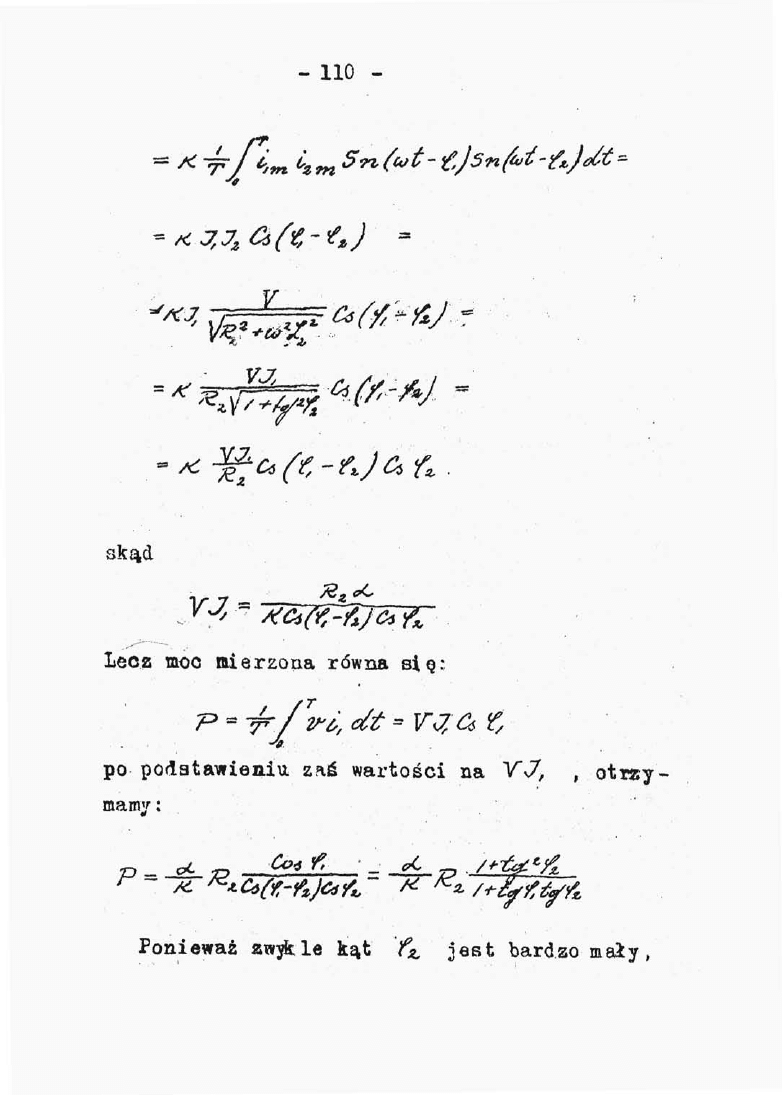 - 110 -
= K 1/T ∫₀ᵀ i₁m i₂m Sn(ωt-φ₁)Sn(ωt-φ₂)dt=
= K J₁J₂ Cs(φ₁-φ₂) =
=KJ₁ V/√(R₂²+ω²ℒ₂²) Cs(φ₁-φ₂) =
= K VJ₁/(R₂√(1+tg²φ₂)) Cs(φ₁-φ₂) =
= K VJ₁/R₂ Cs(φ₁-φ₂) Cs φ₂ .
skąd
VJ₁ = R₂α/(KCs(φ₁-φ₂)Cs φ₂)
Lecz moc mierzona równa się:
P = 1/T ∫₀ᵀ vi₁ dt = VJ₁ Cs φ₁
po podstawieniu zaś wartości na VJ₁ , otrzy-
mamy:
P = α/K R₂ Cos φ₁/(Cs(φ₁-φ₂)Csφ₂) = α/K R₂ (1+tg²φ₂)/(1+tgφ₁tgφ₂)
Ponieważ zwykle kąt φ₂ jest bardzo mały,